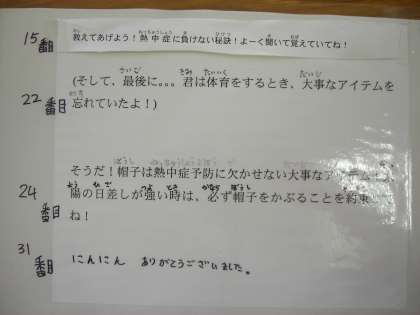 15番目
教えてあげよう！熱中症に負けない秘訣！よーく聞いて覚えていてね！
22番目
(そして、最後に。。。君は体育をするとき、大事なアイテムを
忘れていたよ！)
24番目
そうだ！帽子は熱中症予防に欠かせない大事なアイテム！
陽の日差しが強い時は、必ず帽子をかぶることを約束
ね！
31番目
にんにん ありがとうございました。